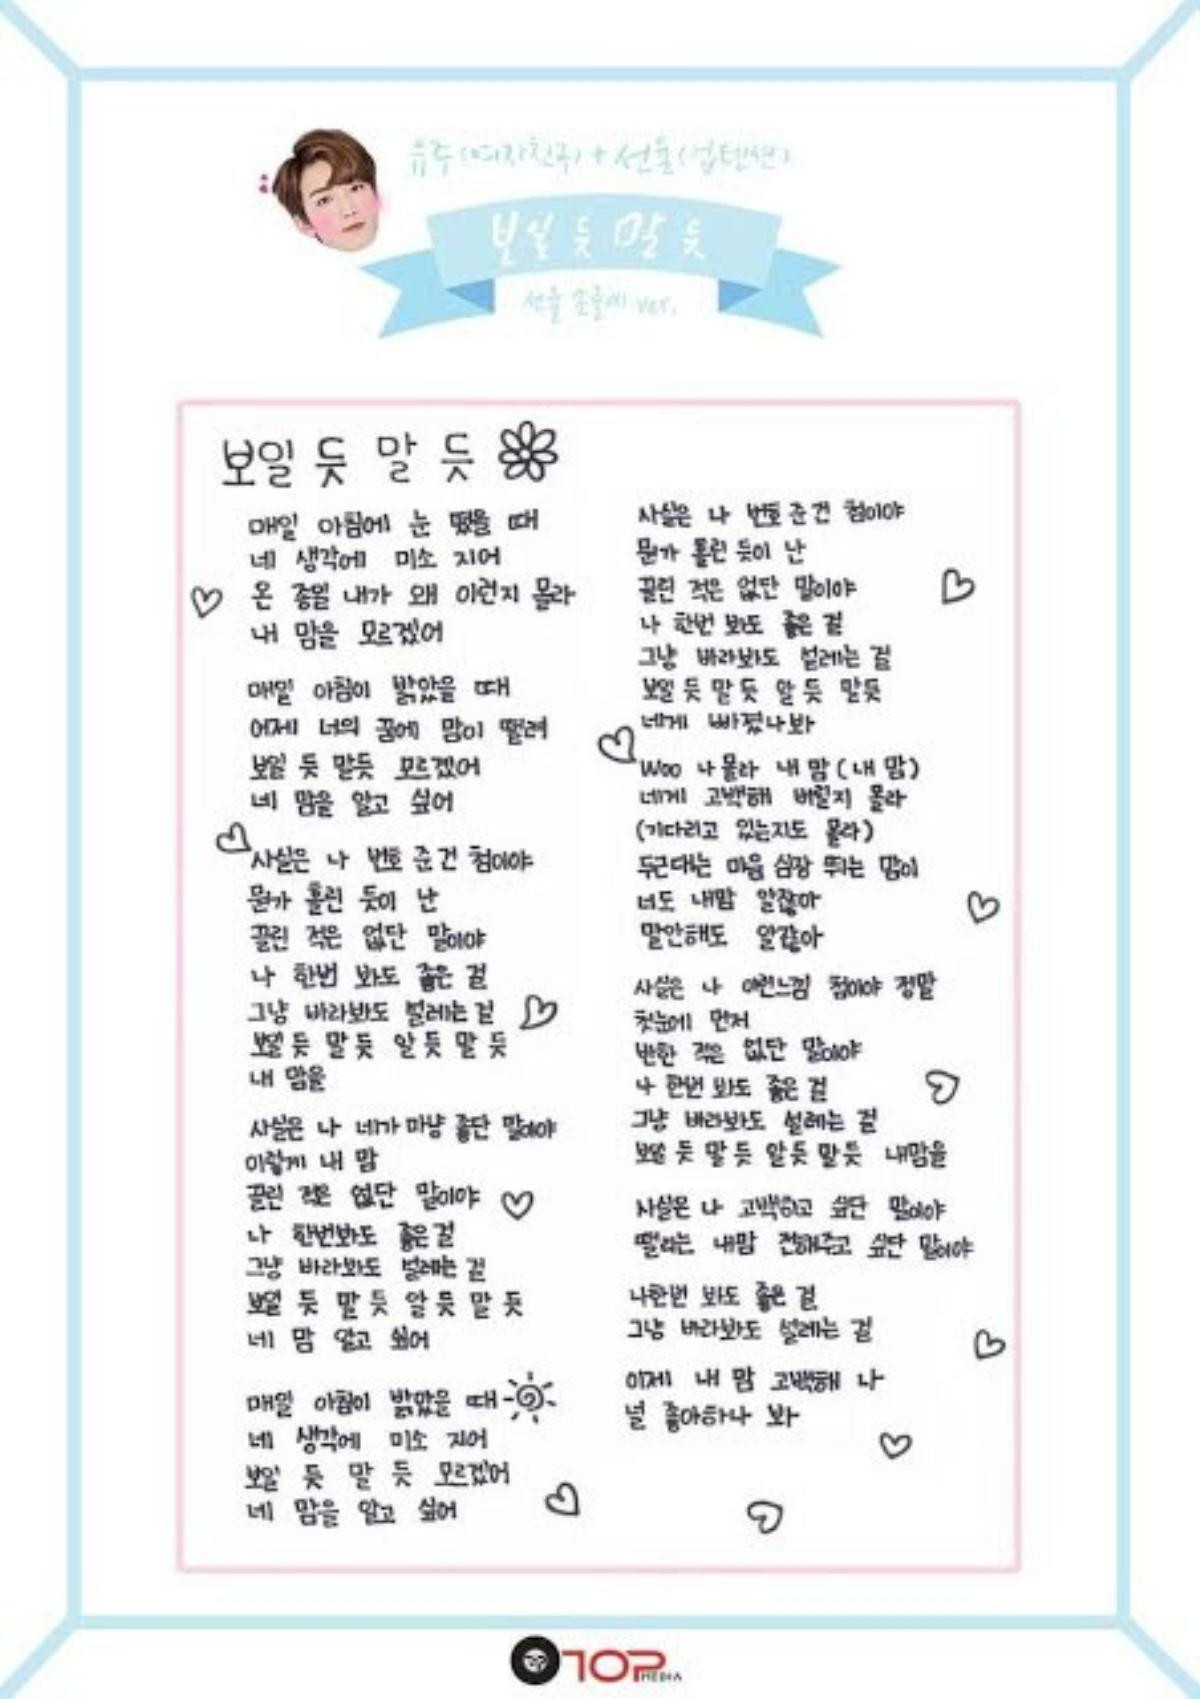 유주(여자친구) + 선율(업텐션)
보일 듯 말 듯
선율 손글씨 ver.
보일 듯 말 듯
매일 아침에 눈 떴을 때
네 생각에 미소 지어
온 종일 내가 왜 이런지 몰라
내 맘을 모르겠어
매일 아침이 밝았을 때
어제 너의 꿈에 맘이 떨려
보일 듯 말듯 모르겠어
네 맘을 알고 싶어
사실은 나 번호 준 건 첨이야
뭔가 홀린 듯이 난
끌린 적은 없단 말이야
나 한번 봐도 좋은 걸
그냥 바라봐도 설레는 걸
보일 듯 말 듯 알 듯 말 듯
내 맘을
사실은 나 네가 마냥 좋단 말이야
이렇게 내 맘
끌린 적은 없단 말이야
나 한번봐도 좋은 걸
그냥 바라봐도 설레는 걸
보일 듯 말 듯 알 듯 말 듯
네 맘 알고 싶어
매일 아침이 밝았을 때
네 생각에 미소 지어
보일 듯 말 듯 모르겠어
네 맘을 알고 싶어
사실은 나 번호 준 건 첨이야
뭔가 홀린 듯이 난
끌린 적은 없단 말이야
나 한번 봐도 좋은 걸
그냥 바라봐도 설레는 걸
보일 듯 말 듯 알 듯 말듯
네게 빠졌나봐
Woo 나 몰라 내 맘 (내 맘)
네게 고백해 버릴지 몰라
(기다리고 있는지도 몰라)
두근대는 마음 심장 뛰는 맘이
너도 내맘 알잖아
말안해도 알잖아
사실은 나 이런느낌 첨이야 정말
첫눈에 먼저
반한 적은 없단 말이야
나 한번 봐도 좋은 걸
그냥 바라봐도 설레는 걸
보일 듯 말 듯 알듯 말듯 내맘을
사실은 나 고백하고 싶단 말이야
떨리는 내맘 전해주고 싶단 말이야
나한번 봐도 좋은 걸
그냥 바라봐도 설레는 걸
이제 내 맘 고백해 나
널 좋아하나 봐
TOP MEDIA